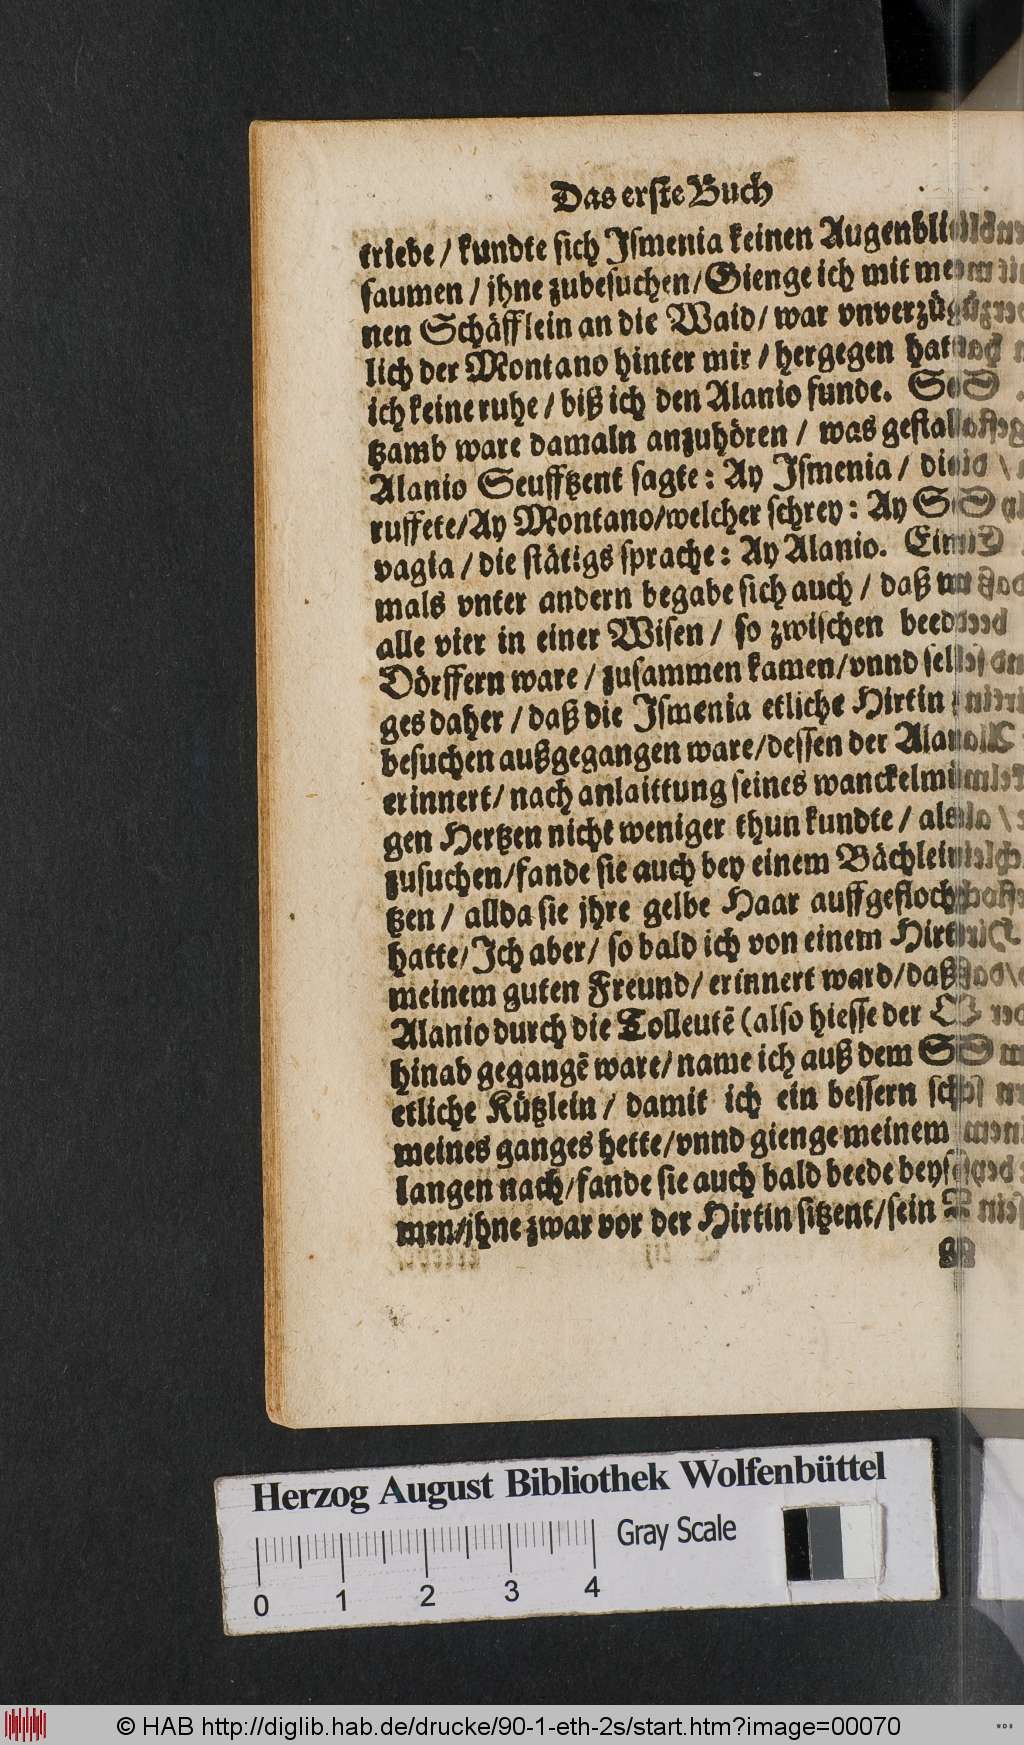 Das erste Buch
triebe / kundte sich Ismenia keinen
saumen / jhne zubesuchen / Gienge ich mit
nen Schäfflein an die Waid / war
lich der Montano hinter mir / hergegen
ich keine ruhe / biß ich den Alanio funde.
tzamb ware damaln anzuhören / was
Alanio Seufftzent sagte : Ay Ismenia /
ruffete / Ay Montano / welcher schrey : Ay
vagia / die stätigs sprache : Ay Alanio.
mals vnter andern begabe sich auch / daß
alle vier in einer Wisen / so zwischen
Dörffern ware / zusammen kamen / vnnd
ges daher / daß die Ismenia etliche Hirtin
besuchen außgegangen ware / dessen der
erinnert / nach anlaittung seines
gen Hertzen nicht weniger thun kundte /
zusuchen / fande sie auch bey einem
tzen / allda sie jhre gelbe Haar
hatte / Ich aber / so bald ich von einem
meinem guten Freund / erinnert ward /
Alanio durch die Tolleutẽ (also hiesse der
hinab gegangẽ ware / name ich auß dem
etliche Kützlein / damit ich ein bessern
meines ganges hette / vnnd gienge meinem
langen nach / fande sie auch bald beede
men / jhne zwar vor der Hirtin sitzent / sein
Herzog August Bibliothek Wolfenbüttel
Gray Scale
0 1 2 3 4
© HAB http://diglib.hab.de/drucke/90-1-eth-2s/start.htm?image=00070